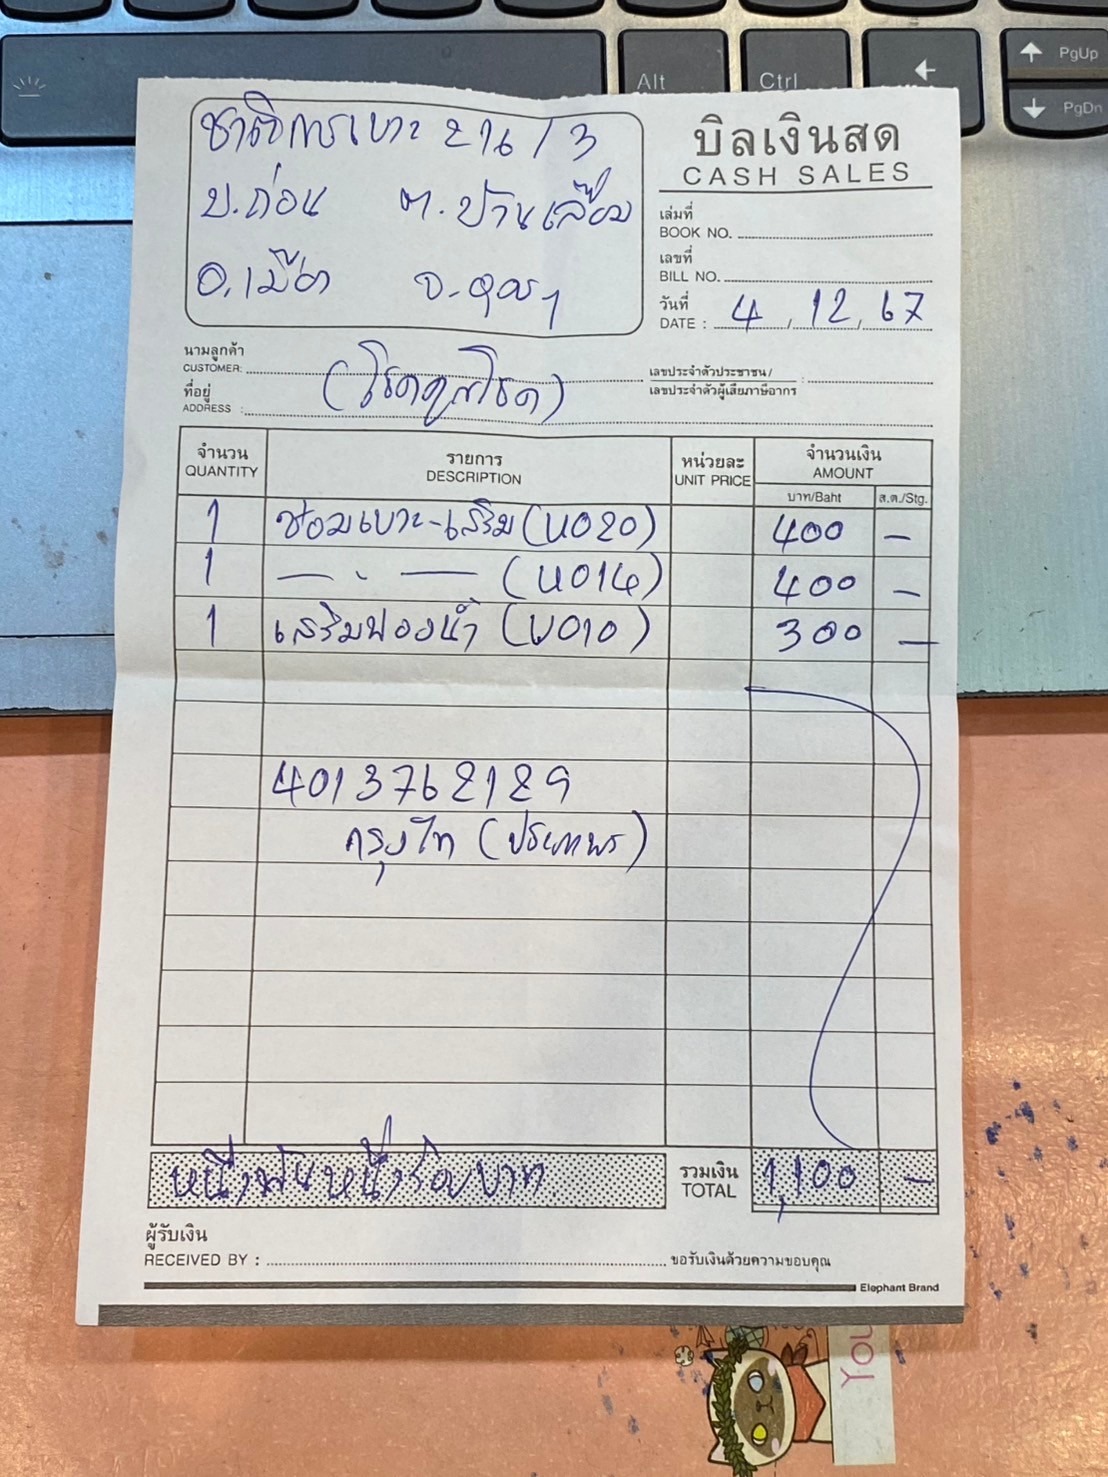 Alt Ctrl ← ↑ PgUp
↓ PgDn
ชาติการเบาะ 216/3
บ.ก่อน ต.บ้านเลื่อม
อ.เมือง จ.อุดรฯ
บิลเงินสด
CASH SALES
เล่มที่
BOOK NO.
เลขที่
BILL NO.
วันที่
DATE : 4 / 12 / 67
นามลูกค้า
CUSTOMER:
(โชคคูณโชค)
เลขประจำตัวประชาชน/
เลขประจำตัวผู้เสียภาษีอากร :
ที่อยู่
ADDRESS :
จำนวน รายการ หน่วยละ จำนวนเงิน
QUANTITY DESCRIPTION UNIT PRICE AMOUNT
บาท/Baht ส.ต./Stg.
1 ซ่อมเบาะ-เสริม (U020) 400 –
1 — . — (U014) 400 –
1 เสริมฟองน้ำ (U010) 300 –
4013762129
กรุงไทย (ประเทพร)
หนึ่งพันหนึ่งร้อยบาท
รวมเงิน
TOTAL 1,100 –
ผู้รับเงิน
RECEIVED BY :
ขอรับเงินด้วยความขอบคุณ
Elephant Brand
You